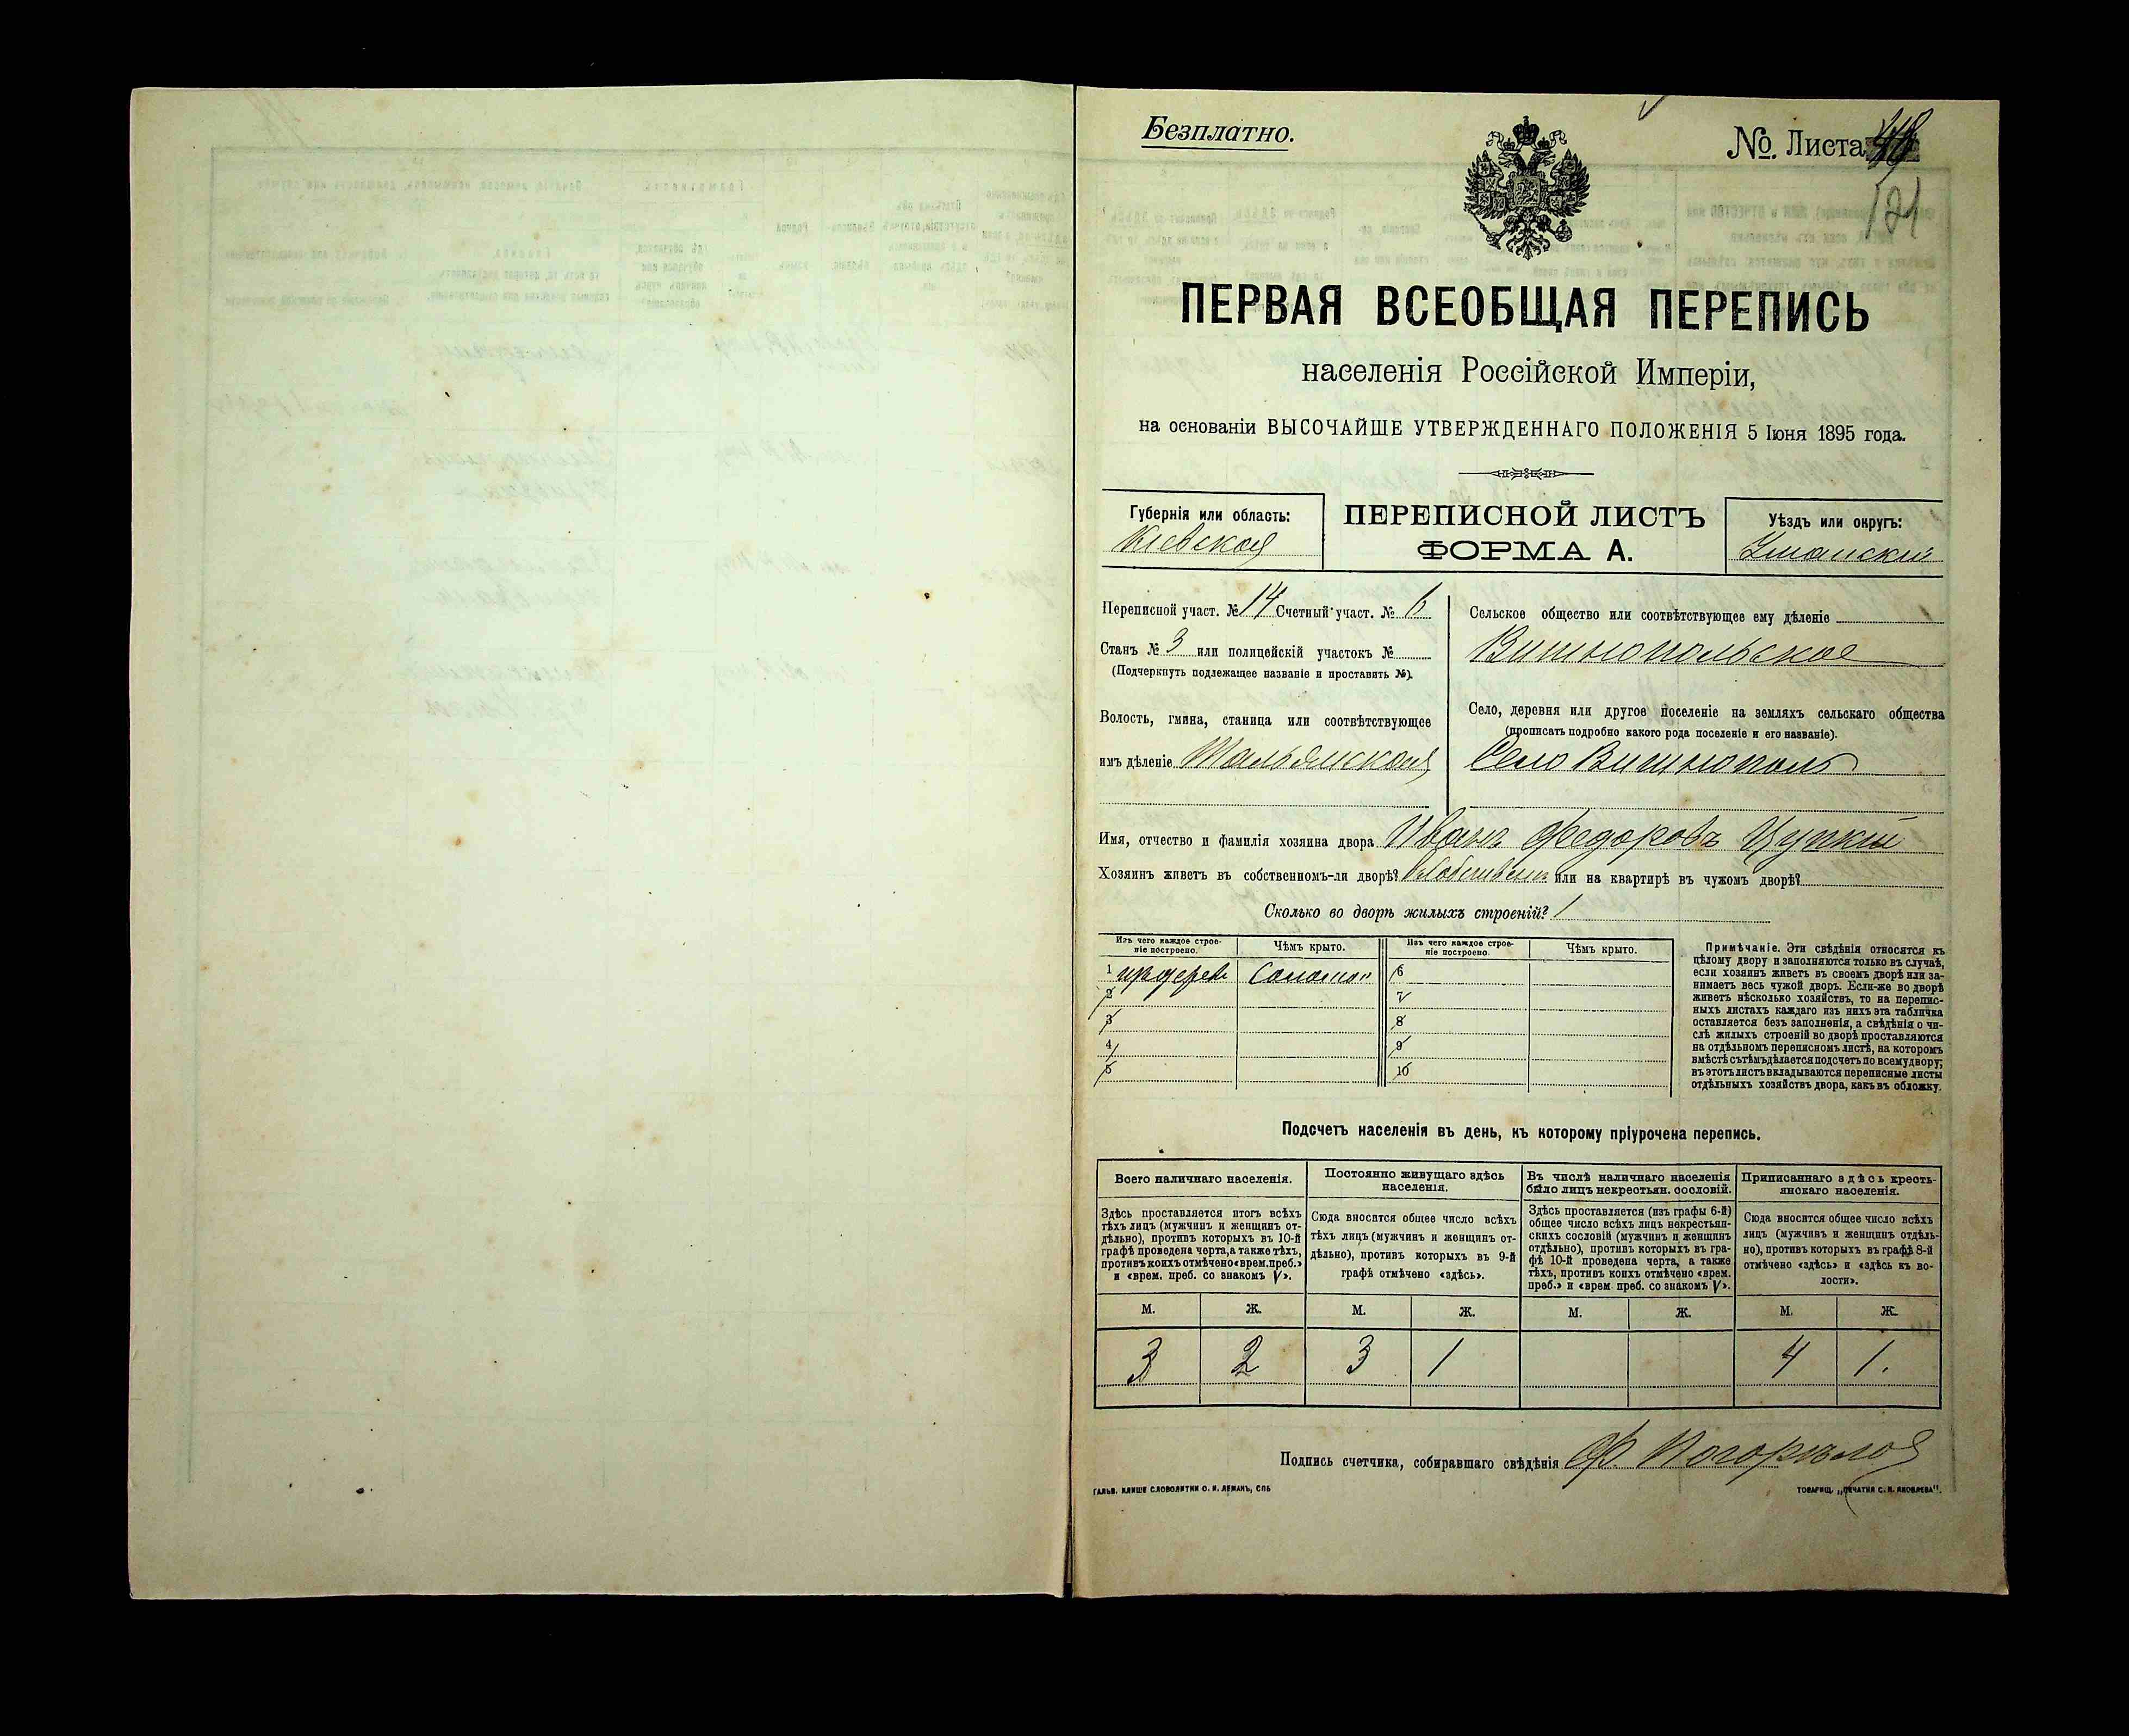 Безплатно.
№. Листа
121
ПЕРВАЯ ВСЕОБЩАЯ ПЕРЕПИСЬ
населенія Россійской Имперіи,
на основаніи ВЫСОЧАЙШЕ УТВЕРЖДЕННАГО ПОЛОЖЕНІЯ 5 Іюня 1895 года.
Губернія или область:
Кіевская
ПЕРЕПИСНОЙ ЛИСТЪ
ФОРМА А.
Уѣздъ или округъ:
Уманскій
Переписной участ. № 14 Счетный участ. № 6
Станъ № 3 или полицейскій участокъ №
(Подчеркнуть подлежащее названіе и проставить №).
Волость, гмина, станица или соотвѣтствующее
имъ дѣленіе Тальянская
Сельское общество или соотвѣтствующее ему дѣленіе
Вишнопольское
Село, деревня или другое поселеніе на земляхъ сельскаго общества
(прописать подробно какого рода поселеніе и его названіе).
Село Вишнополь
Имя, отчество и фамилія хозяина двора Иванъ Федоровъ Цуркій
Хозяинъ живетъ въ собственномъ-ли дворѣ? или на квартирѣ въ чужомъ дворѣ?
Сколько во дворѣ жилыхъ строеній? 1
Изъ чего каждое строе-
ніе построено.
Чѣмъ крыто.
Изъ чего каждое строе-
ніе построено.
Чѣмъ крыто.
1 изъ дерев Солотои 6
2 7
3 8
4 9
5 10
Примѣчаніе. Эти свѣдѣнія относятся къ
цѣлому двору и заполняются только въ случаѣ,
если хозяинъ живетъ въ своемъ дворѣ или за-
нимаетъ весь чужой дворъ. Если-же во дворѣ
живетъ нѣсколько хозяйствъ, то на перепис-
ныхъ листахъ каждаго изъ нихъ эта табличка
оставляется безъ заполненія, а свѣдѣнія о чи-
слѣ жилыхъ строеній во дворѣ проставляются
на отдѣльномъ переписномъ листѣ, на которомъ
вмѣстѣ съ тѣмъ дѣлается подсчетъ по всему двору;
въ этотъ листъ вкладываются переписные листы
отдѣльныхъ хозяйствъ двора, какъ въ обложку.
Подсчетъ населенія въ день, къ которому пріурочена перепись.
Всего наличнаго населенія.
Здѣсь проставляется итогъ всѣхъ
тѣхъ лицъ (мужчинъ и женщинъ от-
дѣльно), противъ которыхъ въ 10-й
графѣ проведена черта, а также тѣхъ,
противъ коихъ отмѣчено «врем. преб.»
и «врем. преб. со знакомъ V».
Постоянно живущаго здѣсь
населенія.
Сюда вносится общее число всѣхъ
тѣхъ лицъ (мужчинъ и женщинъ от-
дѣльно), противъ которыхъ въ 9-й
графѣ отмѣчено «здѣсь».
Въ числѣ наличнаго населенія
было лицъ некрестьян. сословій.
Здѣсь проставляется (изъ графы 6-й)
общее число всѣхъ лицъ некрестьян-
скихъ сословій (мужчинъ и женщинъ
отдѣльно), противъ которыхъ въ гра-
фѣ 10-й проведена черта, а также
тѣхъ, противъ коихъ отмѣчено «врем.
преб.» и «врем преб. со знакомъ V».
Приписаннаго здѣсь кресть-
янскаго населенія.
Сюда вносится общее число всѣхъ
лицъ (мужчинъ и женщинъ отдѣль-
но), противъ которыхъ въ графѣ 8-й
отмѣчено «здѣсь» и «здѣсь къ во-
лости».
М. Ж. М. Ж. М. Ж. М. Ж.
3 2 3 1 4 1.
Подпись счетчика, собиравшаго свѣдѣнія Ф. Погорѣлов
ГАЛЬВ. КЛИШЕ СЛОВОЛИТНИ О. И. ЛЕМАНЪ, СПБ
ТОВАРИЩ. „ПЕЧАТНЯ С. П. ЯКОВЛЕВА".